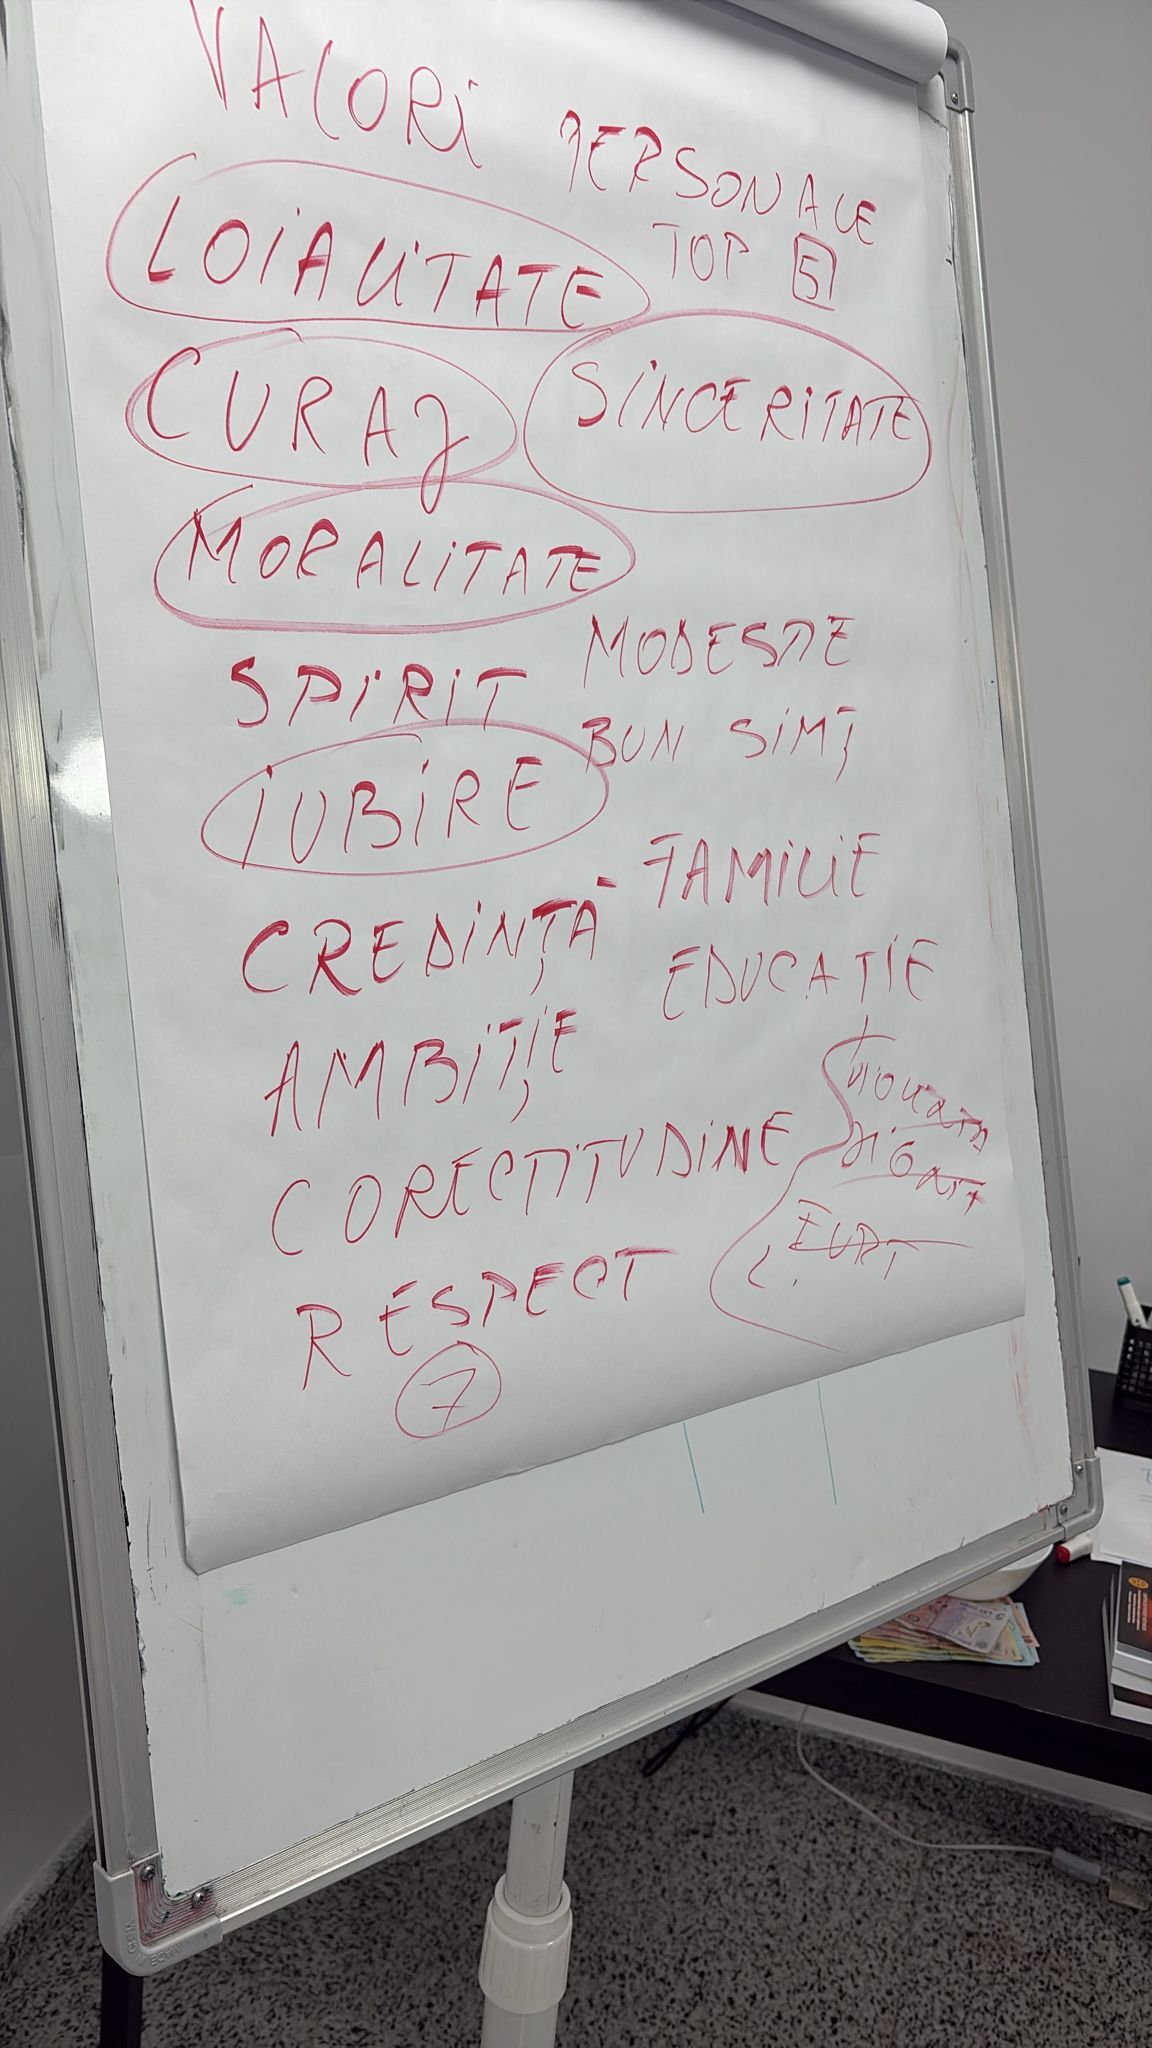 VALORI PERSONALE
TOP 5
LOIALITATE
CURAJ
SINCERITATE
MORALITATE
SPIRIT
MODESTIE
BUN SIMȚ
IUBIRE
FAMILIE
CREDINȚĂ
EDUCAȚIE
AMBIȚIE
CORECTITUDINE
FURT
RESPECT
7